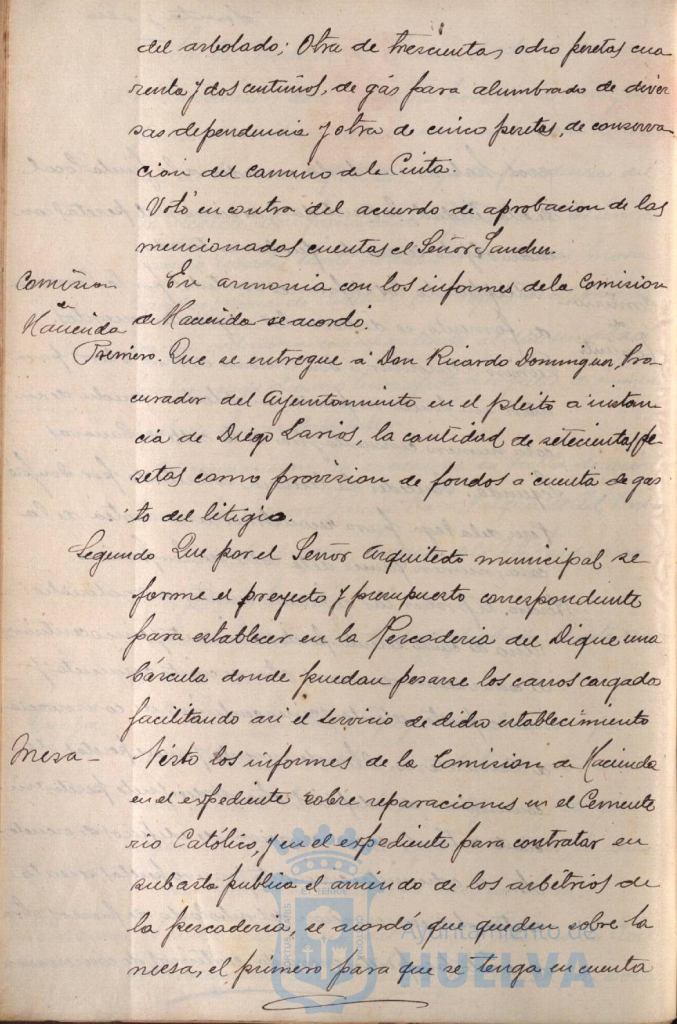 del arbolado; Otra de trescientas ocho pesetas cua
renta y dos centimos, de gás para alumbrado de diver
sas dependencia y otra de cinco pesetas, de conserva
cion del camino de la Cinta.
Votó en contra del acuerdo de aprobacion de las
mencionadas cuentas el Señor Sanchez.
Comision
de
Hacienda
En armonia con los informes de la Comision
de Hacienda se acordó.
Primero. Que se entregue á Don Ricardo Dominguez, Pro
curador del Ayuntamiento en el pleito á instan
cia de Diego Larios, la cantidad de setecientas pe
setas como provision de fondos á cuenta de gas
to del litigio.
Segundo Que por el Señor Arquitecto municipal se
forme el proyecto y presupuesto correspondiente
para establecer en la Pescaderia del Dique una
báscula donde puedan pesarse los carros cargado
facilitando asi el servicio de dicho establecimiento
Mesa -
Visto los informes de la Comision de Hacienda
en el expediente sobre reparaciones en el Cemente
rio Católico, y en el expediente para contratar en
subasta publica el arriendo de los arbitrios de
la pescaderia, se acordó que queden sobre la
mesa, el primero para que se tenga en cuenta
Ayuntamiento de
HUELVA